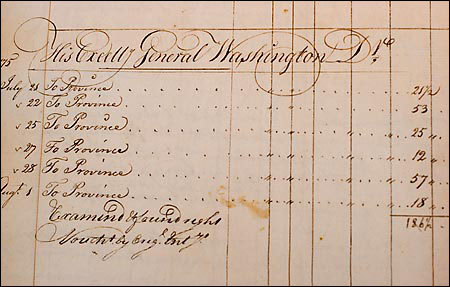 His Excelly General Washington Dr
75
July 21 To Province 21½
" 22 To Province 53
" 25 To Province " " " " 25 "
" 27 To Province " " " " 12 "
" 28 To Province " " " " 57 "
Augt. 1 To Province " " " " 18 "
186½
Examind & found right
by